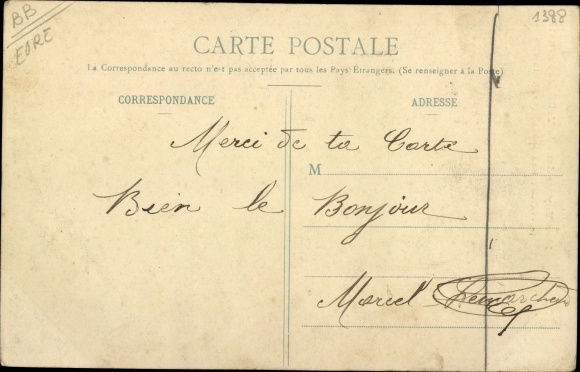 BB
EURE
1388
CARTE POSTALE
La Correspondance au recto n'est pas acceptée par tous les Pays Étrangers. (Se renseigner à la Poste)
CORRESPONDANCE
ADRESSE
Merci de ta Carte
M
Bien le Bonjour
Marcel